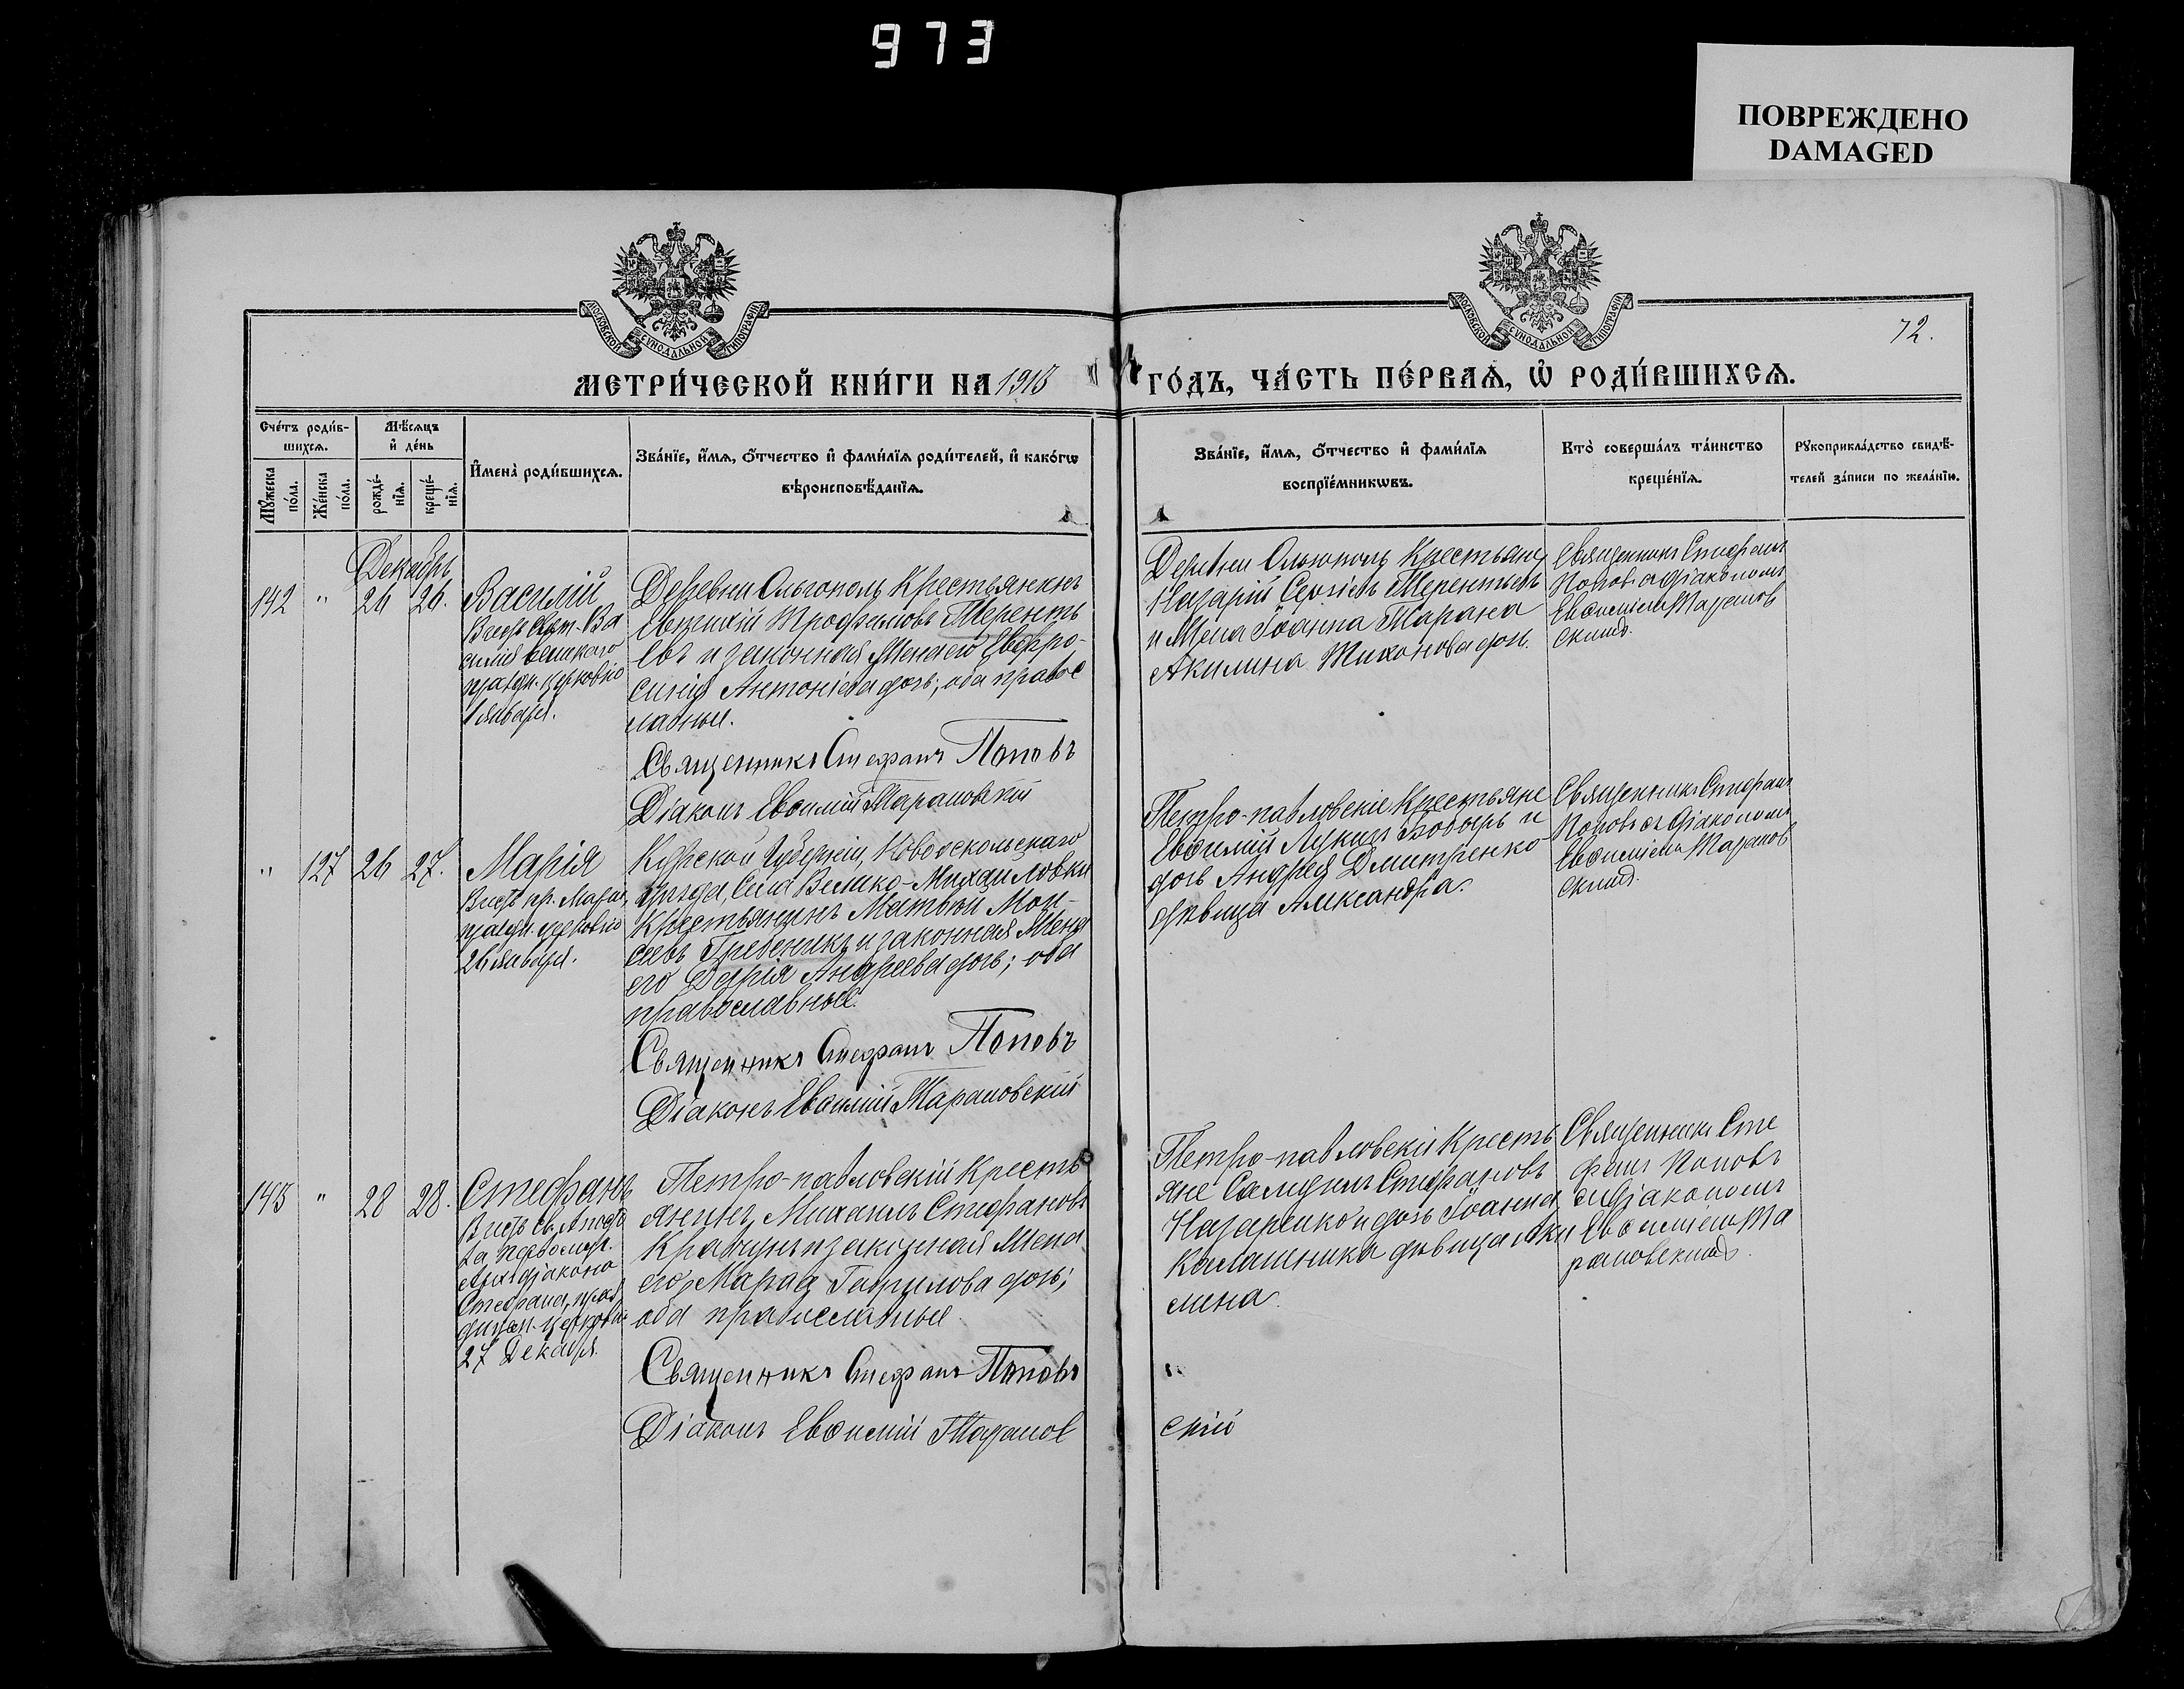 973
ПОВРЕЖДЕНО
DAMAGED
МОСКОВСКОЙ СУНОДАЛЬНОЙ ТИПОГРАФІИ
МОСКОВСКОЙ СУНОДАЛЬНОЙ ТИПОГРАФІИ
72.
МЕТРИ́ЧЕСКОЙ КНИ́ГИ НА 1918
ГО́ДЪ, ЧА́СТЬ ПЕ́РВАѦ, Ѡ҆ РОДИ́ВШИХСѦ.
Сче́тъ роди́в-
шихсѧ.
Мѣ́сѧцъ
и҆ де́нь
Мꙋ́жеска
по́ла.
Же́нска
по́ла.
рожде́-
нїѧ.
креще́-
нїѧ.
И҆мена̀ роди́вшихсѧ.
Зва́нїе, и҆́мѧ, ѻ҆́тчество и҆ фами́лїѧ роди́телей, и҆ како́гѡ
вѣроисповѣ́данїѧ.
Зва́нїе, и҆́мѧ, ѻ҆́тчество и҆ фами́лїѧ
воспрїе́мникѡвъ.
Кто̀ соверша́лъ та́инство
креще́нїѧ.
Рꙋкоприкла́дство свидѣ́-
телей за́писи по жела́нїю.
Декабрь
142 " 26 26.
Василій
Въ честь Свят. Ва
силія Великаго
праздн. церковію
1 января.
Деревни Ольгополь Крестьянинъ
Евгеній Трофимовъ Теренть
евъ и законная жена его Евфро-
синія Антоніева дочь; оба правос
лавные.
Священникъ Стефанъ Поповъ
Діаконъ Евѳимій Тарановскій
Деревни Ольгополь Крестьяне
Назарій Сергіевъ Терентьевъ
и жена Іоанна Тарана
Акилина Тихонова дочь.
Священникъ Стефанъ
Поповъ съ діакономъ
Евѳиміемъ Таранов
скимъ.
" 127 26 27.
Марія
Въ честь пр. Маріи,
праздн. церковію
26 января.
Курской Губерніи, Новооскольскаго
уѣзда, Села Велико-Михайловки
Крестьянинъ Матвѣй Мои-
сеевъ Гребеникъ и законная жена
его Дарія Андреева дочь; оба
православные.
Священникъ Стефанъ Поповъ
Діаконъ Евѳимій Тарановскій
Петро-павловскіе Крестьяне
Евѳимій Лукинъ Бобырь и
дочь Андрея Дмитренко
дѣвица Александра.
Священникъ Стефанъ
Поповъ съ діакономъ
Евѳиміемъ Таранов
скимъ.
143 " 28 28.
Стефанъ
Въ честь Св. Апосто
ла Первомуч.
Архидіакона
Стефана, праз
днуем. церковію
27 Декабря.
Петро-павловскій Кресть
янинъ Михаилъ Стефановъ
Кравчунъ и законная жена
его Марѳа Гаврилова дочь;
оба православные.
Священникъ Стефанъ Поповъ
Діаконъ Евѳимій Таранов
Петро-павловскіе Кресть
яне Самуилъ Стефановъ
Назаренко и дочь Іоанна
Калашника дѣвица Аки
лина.
"
скій
Священникъ Сте
фанъ Поповъ
съ діакономъ
Евѳиміемъ Та
рановскимъ.